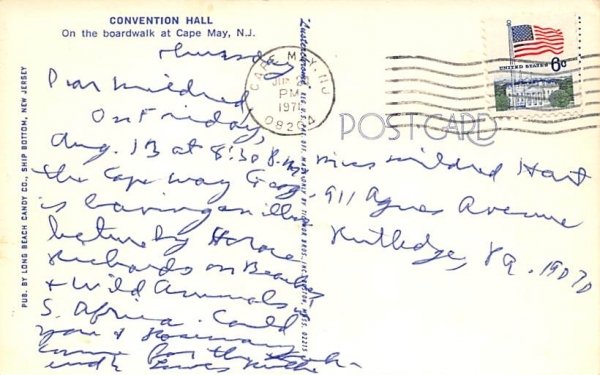 CONVENTION HALL
On the boardwalk at Cape May, N.J.
Thursday
Dear Mildred,
On Friday,
Aug. 13 at 8:30 P.M.
the Cape May Geog.
is having an illus.
lecture by Horace
Richards on
& Wild Animals of
S. Africa. Could
you & Rosemary
come for the week-
end? Love,
PUB. BY LONG BEACH CANDY CO., SHIP BOTTOM, NEW JERSEY
"Lusterchrome" REG. U.S. PAT. OFF. MADE ONLY BY TICHNOR BROS., INC., BOSTON, MASS. 02215
CAPE MAY, NJ
PM
08204
UNITED STATES
6c
POST CARD
Miss Mildred Hart
911 Agnes Avenue
Rutledge, PA. 19070